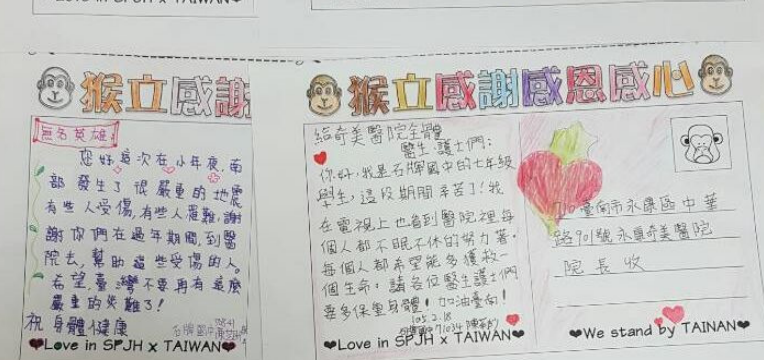 Love in SPJH x TAIWAN
猴立感謝
無名英雄
您好這次在小年夜,南
部發生了很嚴重的地震
有些人受傷,有些人罹難,謝
謝你們在過年期間,到醫
院去,幫助這些受傷的人。
希望,臺灣不要再有這麼
嚴重的災難了!
祝身體健康
Love in SPJH x TAIWAN
猴立感謝感恩感心
給奇美醫院全體
醫生、護士們:
你好,我是石牌國中的七年級
學生,這段期間辛苦了!我
在電視上也看到醫院裡每
個人都不眠不休的努力著。
每個人都希望能多獲救一
個生命。請各位醫生護士們
要多保重身體!加油臺南!
105.2.18
71034
Love in SPJH x TAIWAN
710臺南市永康區中華
路901號永康奇美醫院
院長收
We stand by TAINAN